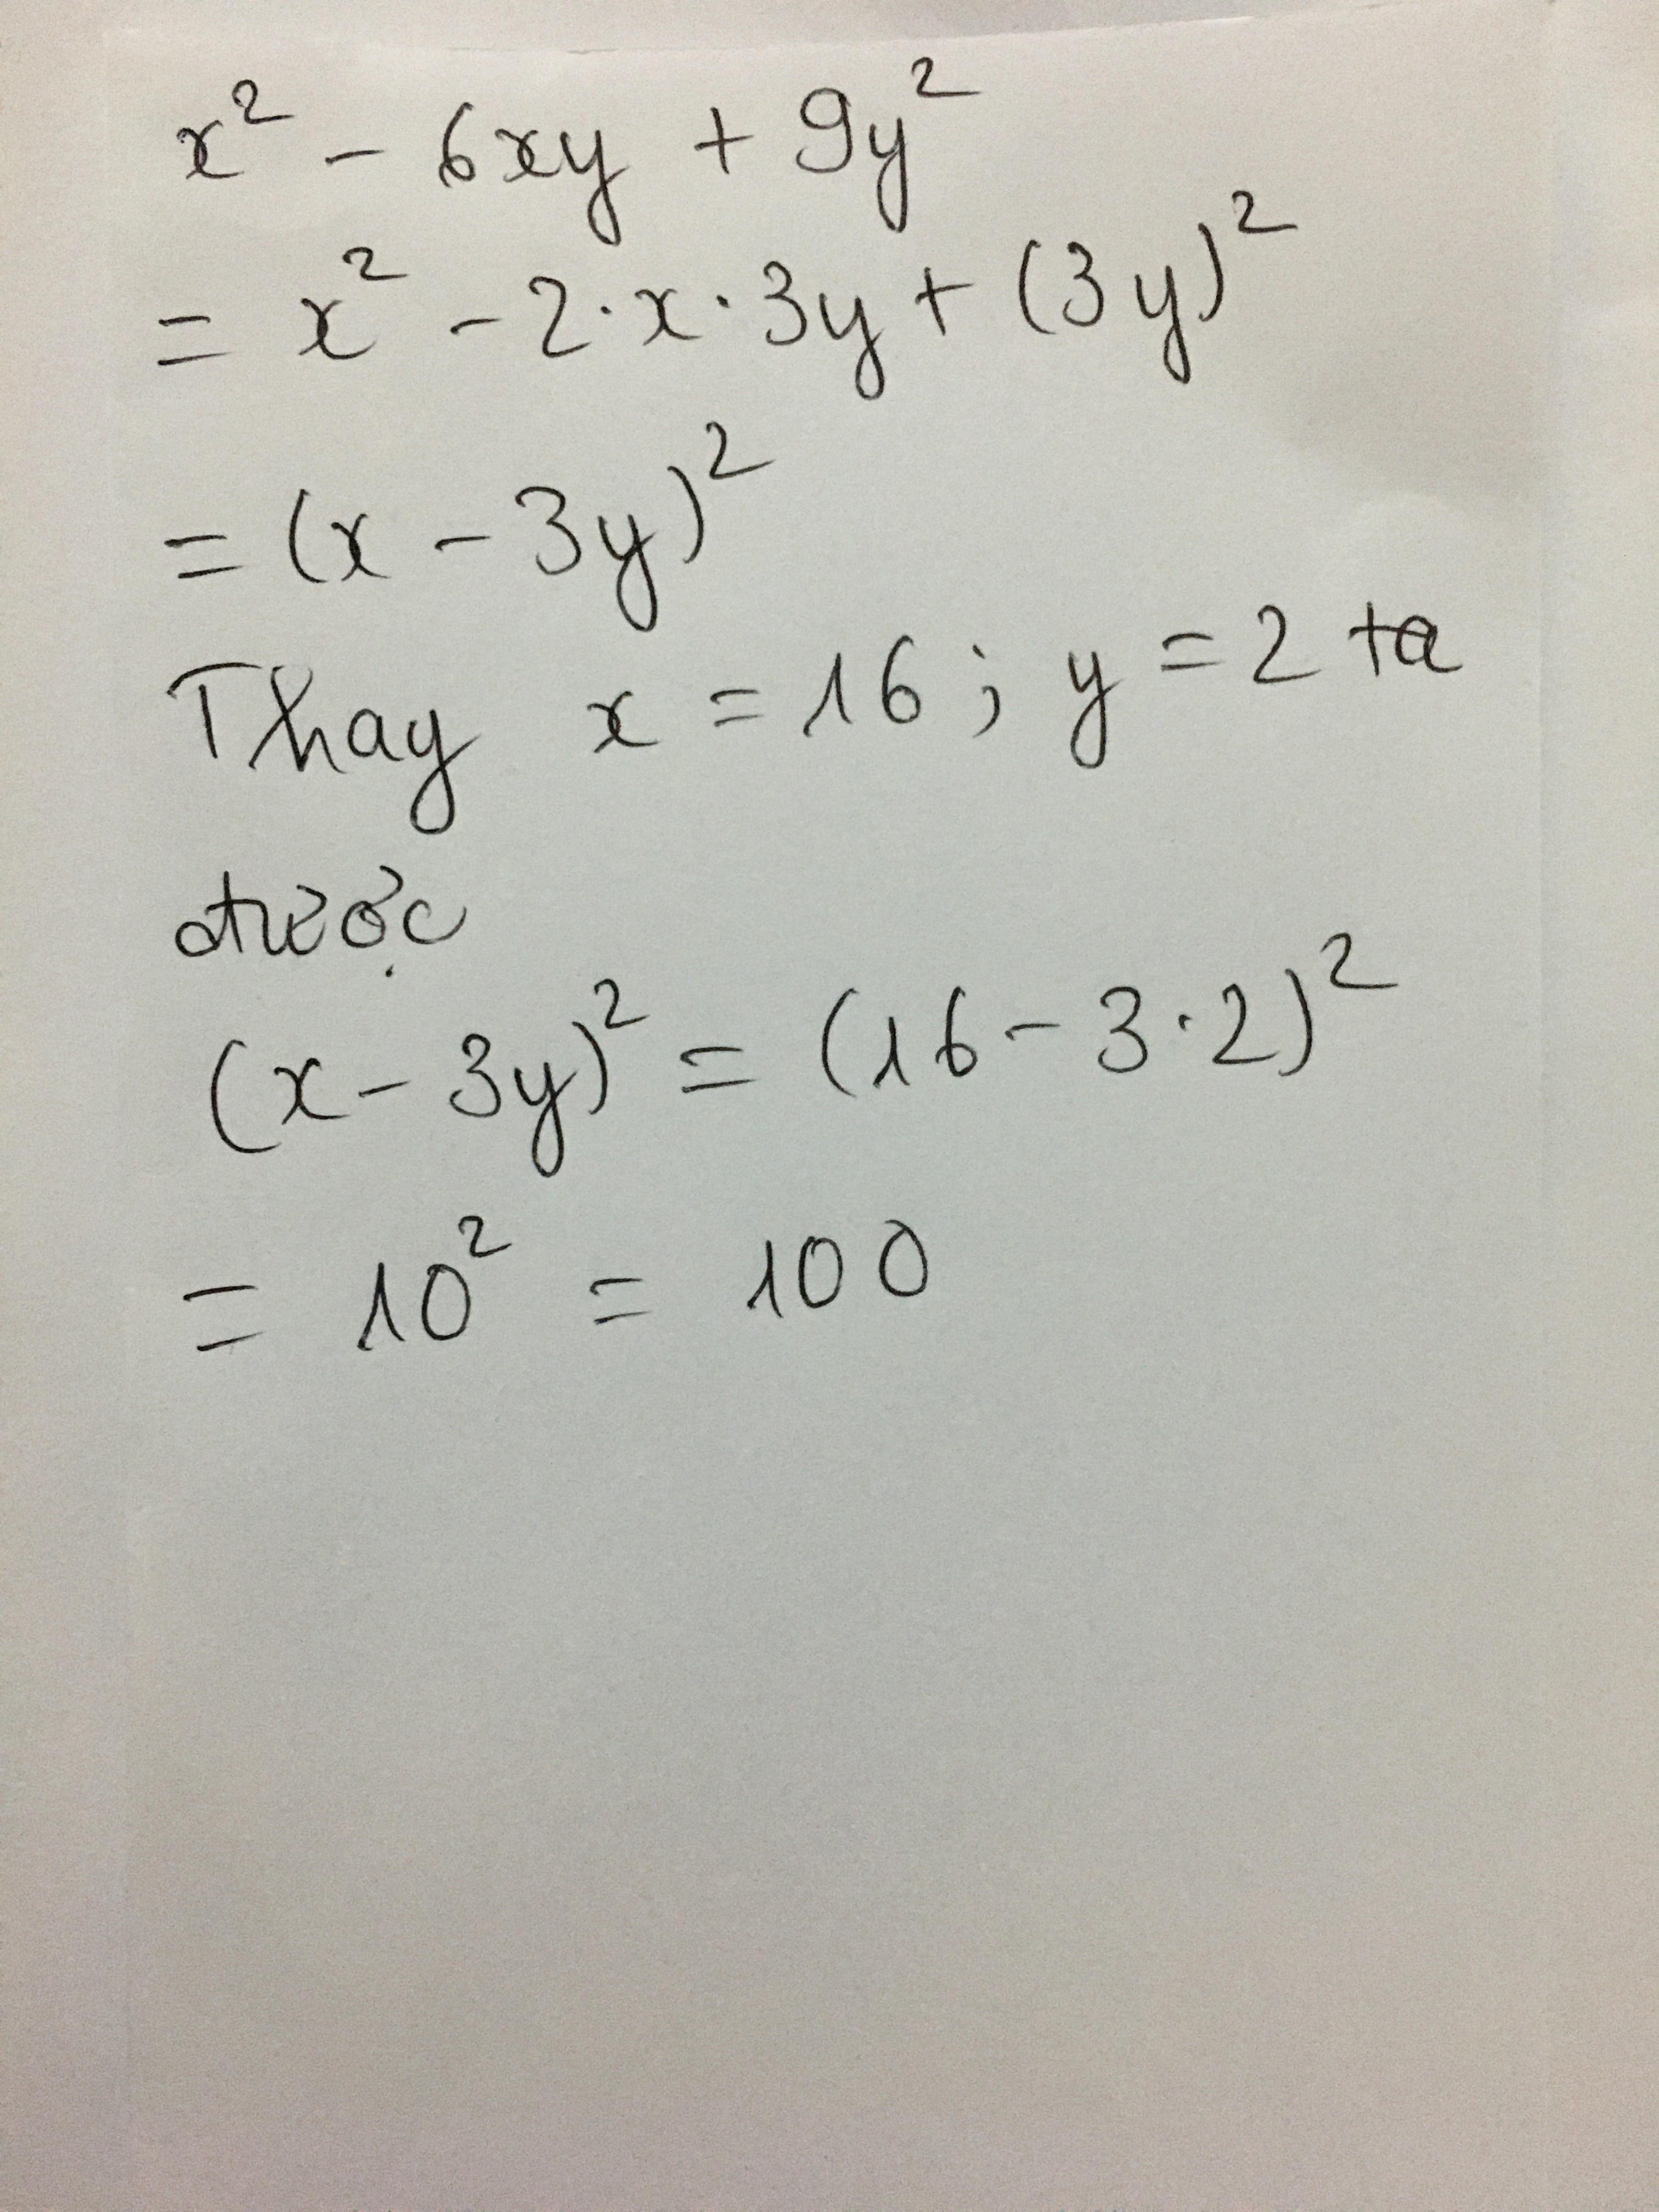 x² - 6xy + 9y²
= x² - 2·x·3y + (3y)²
= (x - 3y)²
Thay x = 16 ; y = 2 ta
được
(x - 3y)² = (16 - 3·2)²
= 10² = 100